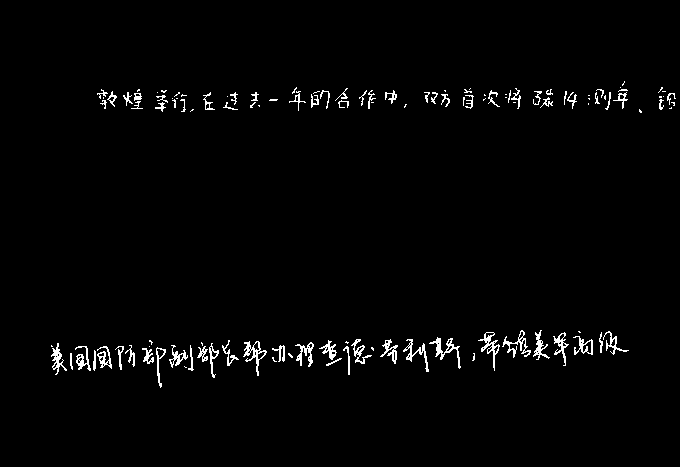 敦煌举行.在过去一年的合作中,双方首次将碳14测年、铅
美国国防部副部长帮办理查德·劳利斯,带领美军高级